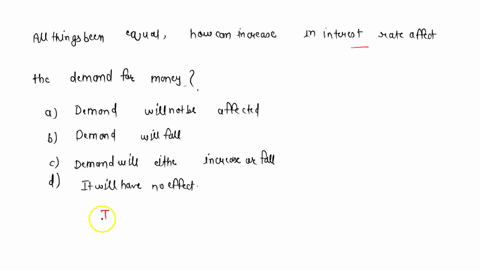 All things been equal, how can increase in interest rate affect
the demand for money ?
a) Demand will not be affected
b) Demand will fall
c) Demand will eithe increase or fall
d) It will have no effect.
I